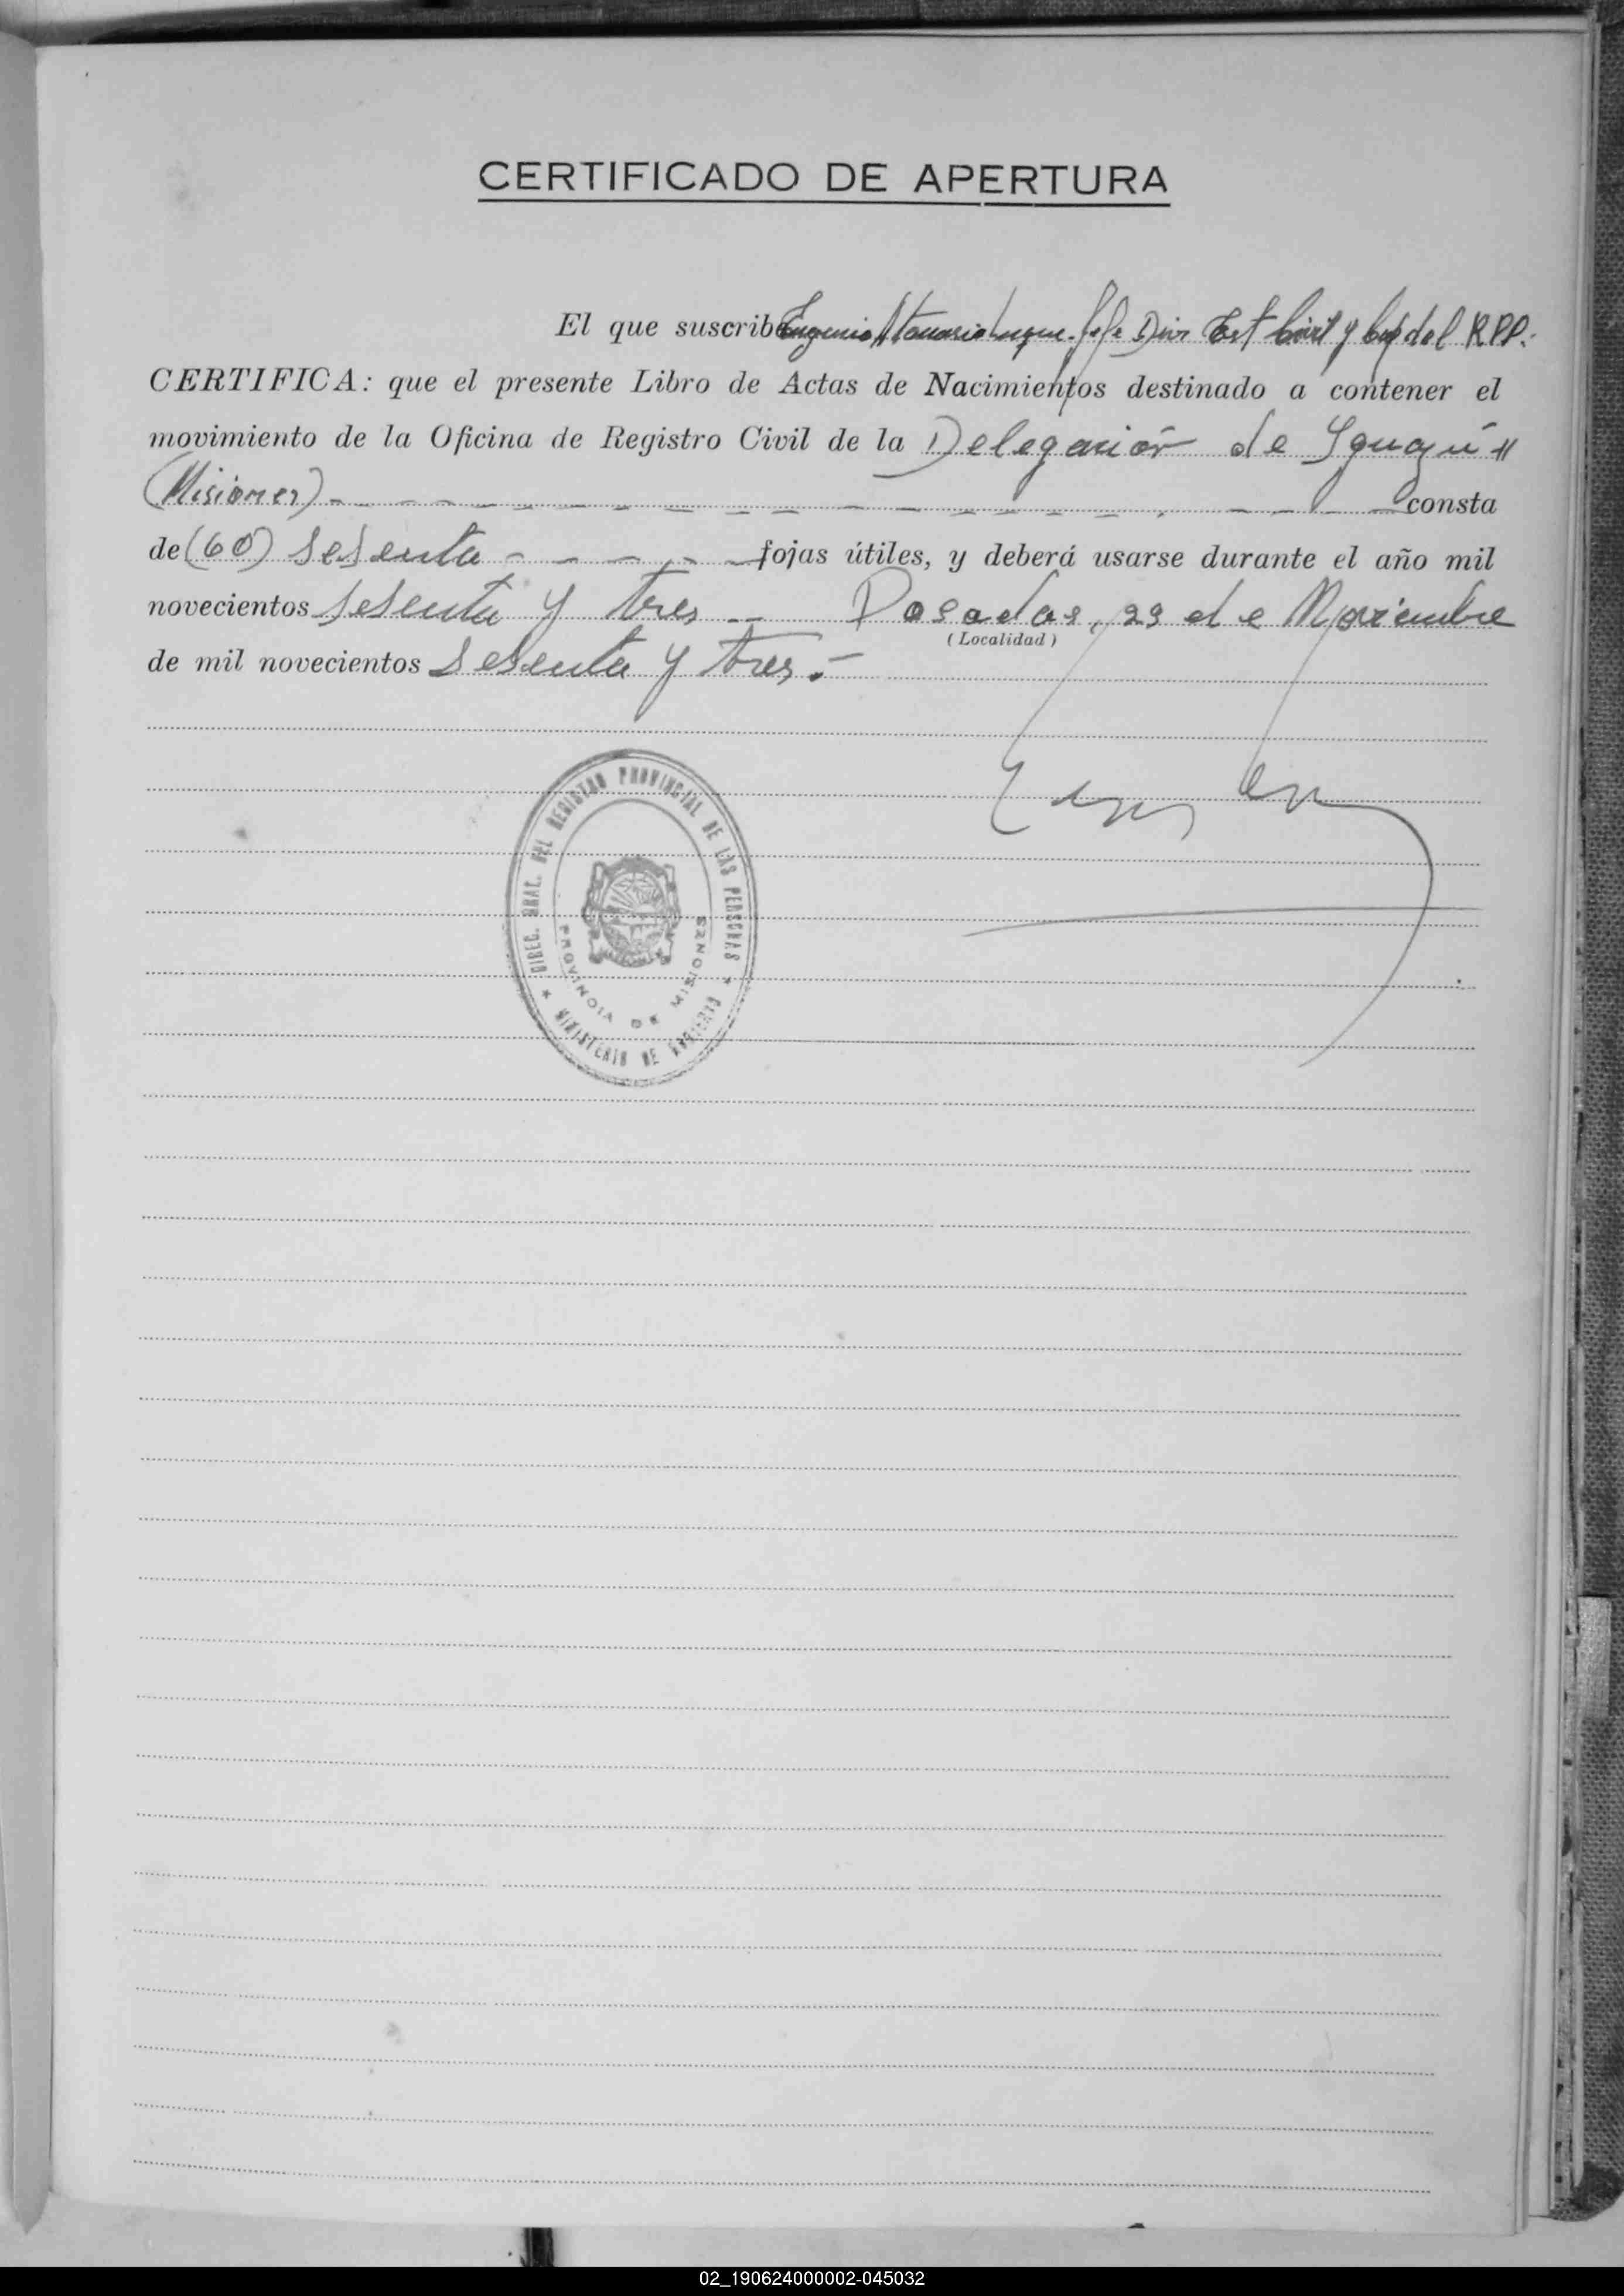 CERTIFICADO DE APERTURA
El que suscribe Eugenio Luque. Jefe Div. Est Civil y Cap del R.P.P.:
CERTIFICA: que el presente Libro de Actas de Nacimientos destinado a contener el
movimiento de la Oficina de Registro Civil de la Delegación de Iguazú "
(Misiones) - - - - - - - - - - - - - - - consta
de (60) sesenta - - - - - fojas útiles, y deberá usarse durante el año mil
novecientos sesenta y tres -- Posadas, 29 de Noviembre
(Localidad)
de mil novecientos sesenta y tres.-
DIREC. GRAL. DEL REGISTRO PROVINCIAL DE LAS PERSONAS
PROVINCIA DE MISIONES
MINISTERIO DE GOBIERNO
02_190624000002-045032